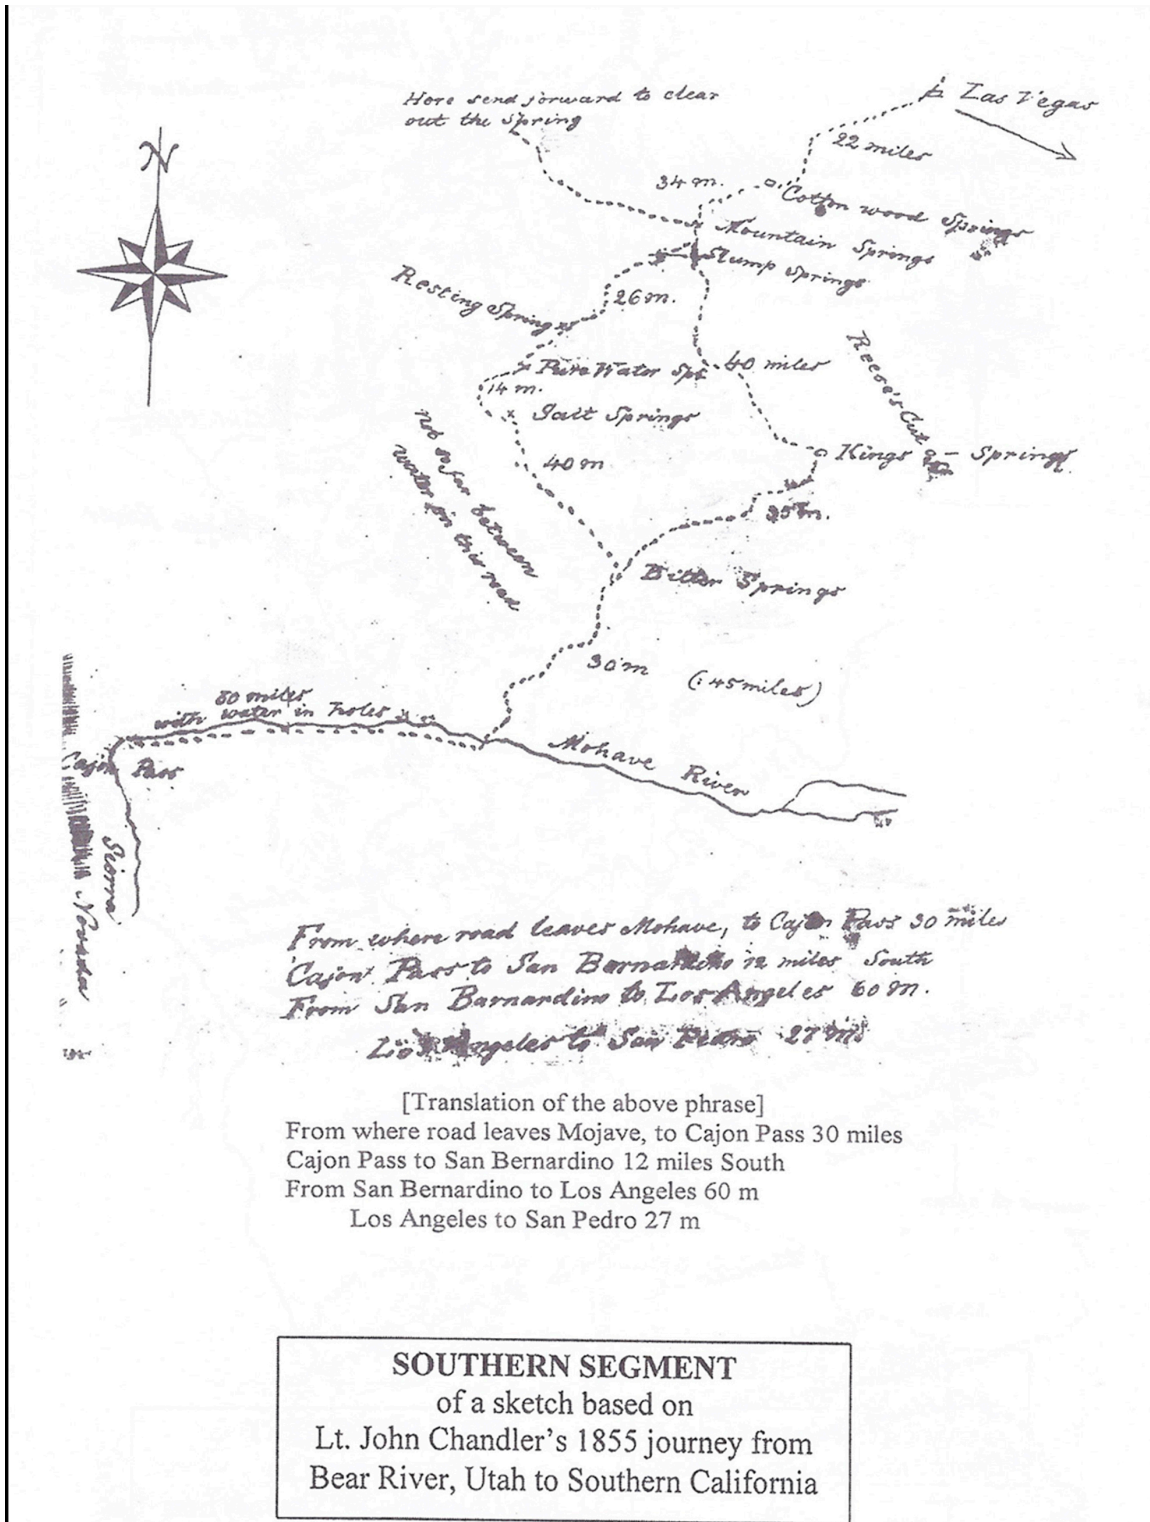 N
Here send forward to clear
out the Spring
Las Vegas
22 miles
34 m.
Cotton wood Springs
Mountain Springs
Stump Springs
26 m.
Resting Springs
Pure Water Sps
40 miles
14 m.
Salt Springs
Reese's Cut
40 m
Kings - Springs
not so far between
water on this road
35 m.
Bitter Springs
30 m (:45 miles)
80 miles
with water in holes
Mohave River
Cajon Pass
Sierra
Nevada
From where road leaves Mohave, to Cajon Pass 30 miles
Cajon Pass to San Bernardino 12 miles South
From San Barnardino to Los Angeles 60 m.
Los Angeles to San Pedro 27 m.
[Translation of the above phrase]
From where road leaves Mojave, to Cajon Pass 30 miles
Cajon Pass to San Bernardino 12 miles South
From San Bernardino to Los Angeles 60 m
Los Angeles to San Pedro 27 m
SOUTHERN SEGMENT
of a sketch based on
Lt. John Chandler's 1855 journey from
Bear River, Utah to Southern California